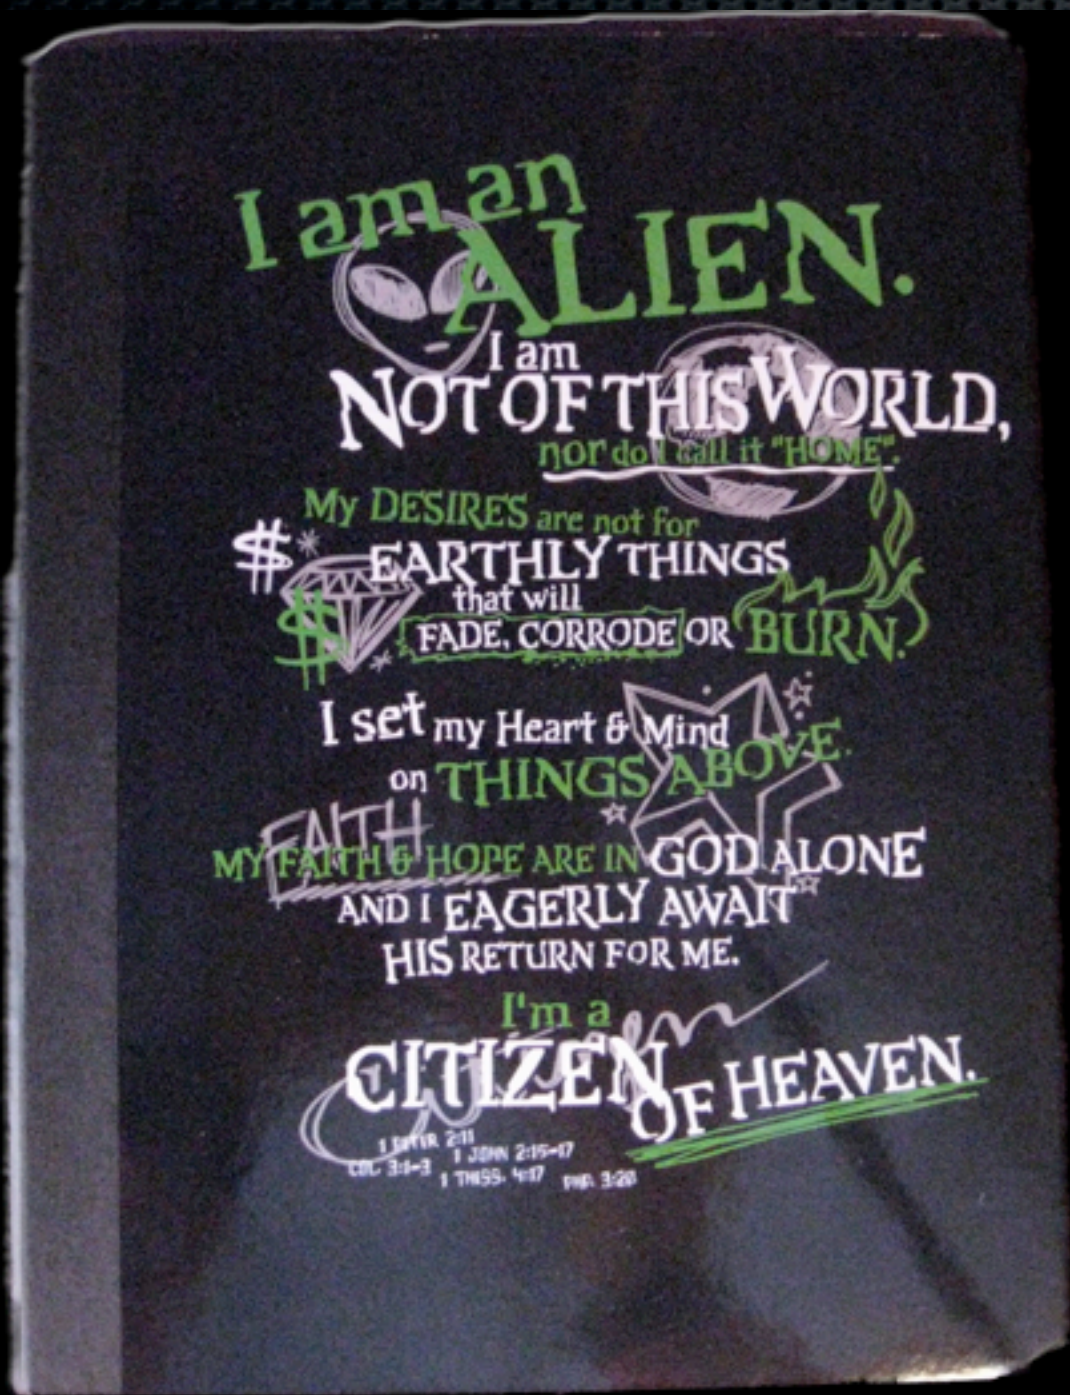 I am an
ALIEN.
I am
NOT OF THIS WORLD,
nor do I call it "HOME".
My DESIRES are not for
$ EARTHLY THINGS
that will
$ FADE, CORRODE OR BURN.
I set my Heart & Mind
on THINGS ABOVE.
FAITH
MY FAITH & HOPE ARE IN GOD ALONE
AND I EAGERLY AWAIT
HIS RETURN FOR ME.
I'm a
Citizen
CITIZEN
OF HEAVEN.
1 PETER 2:11
COL. 3:1-3 1 JOHN 2:15-17
1 THESS. 4:17 PHP. 3:20